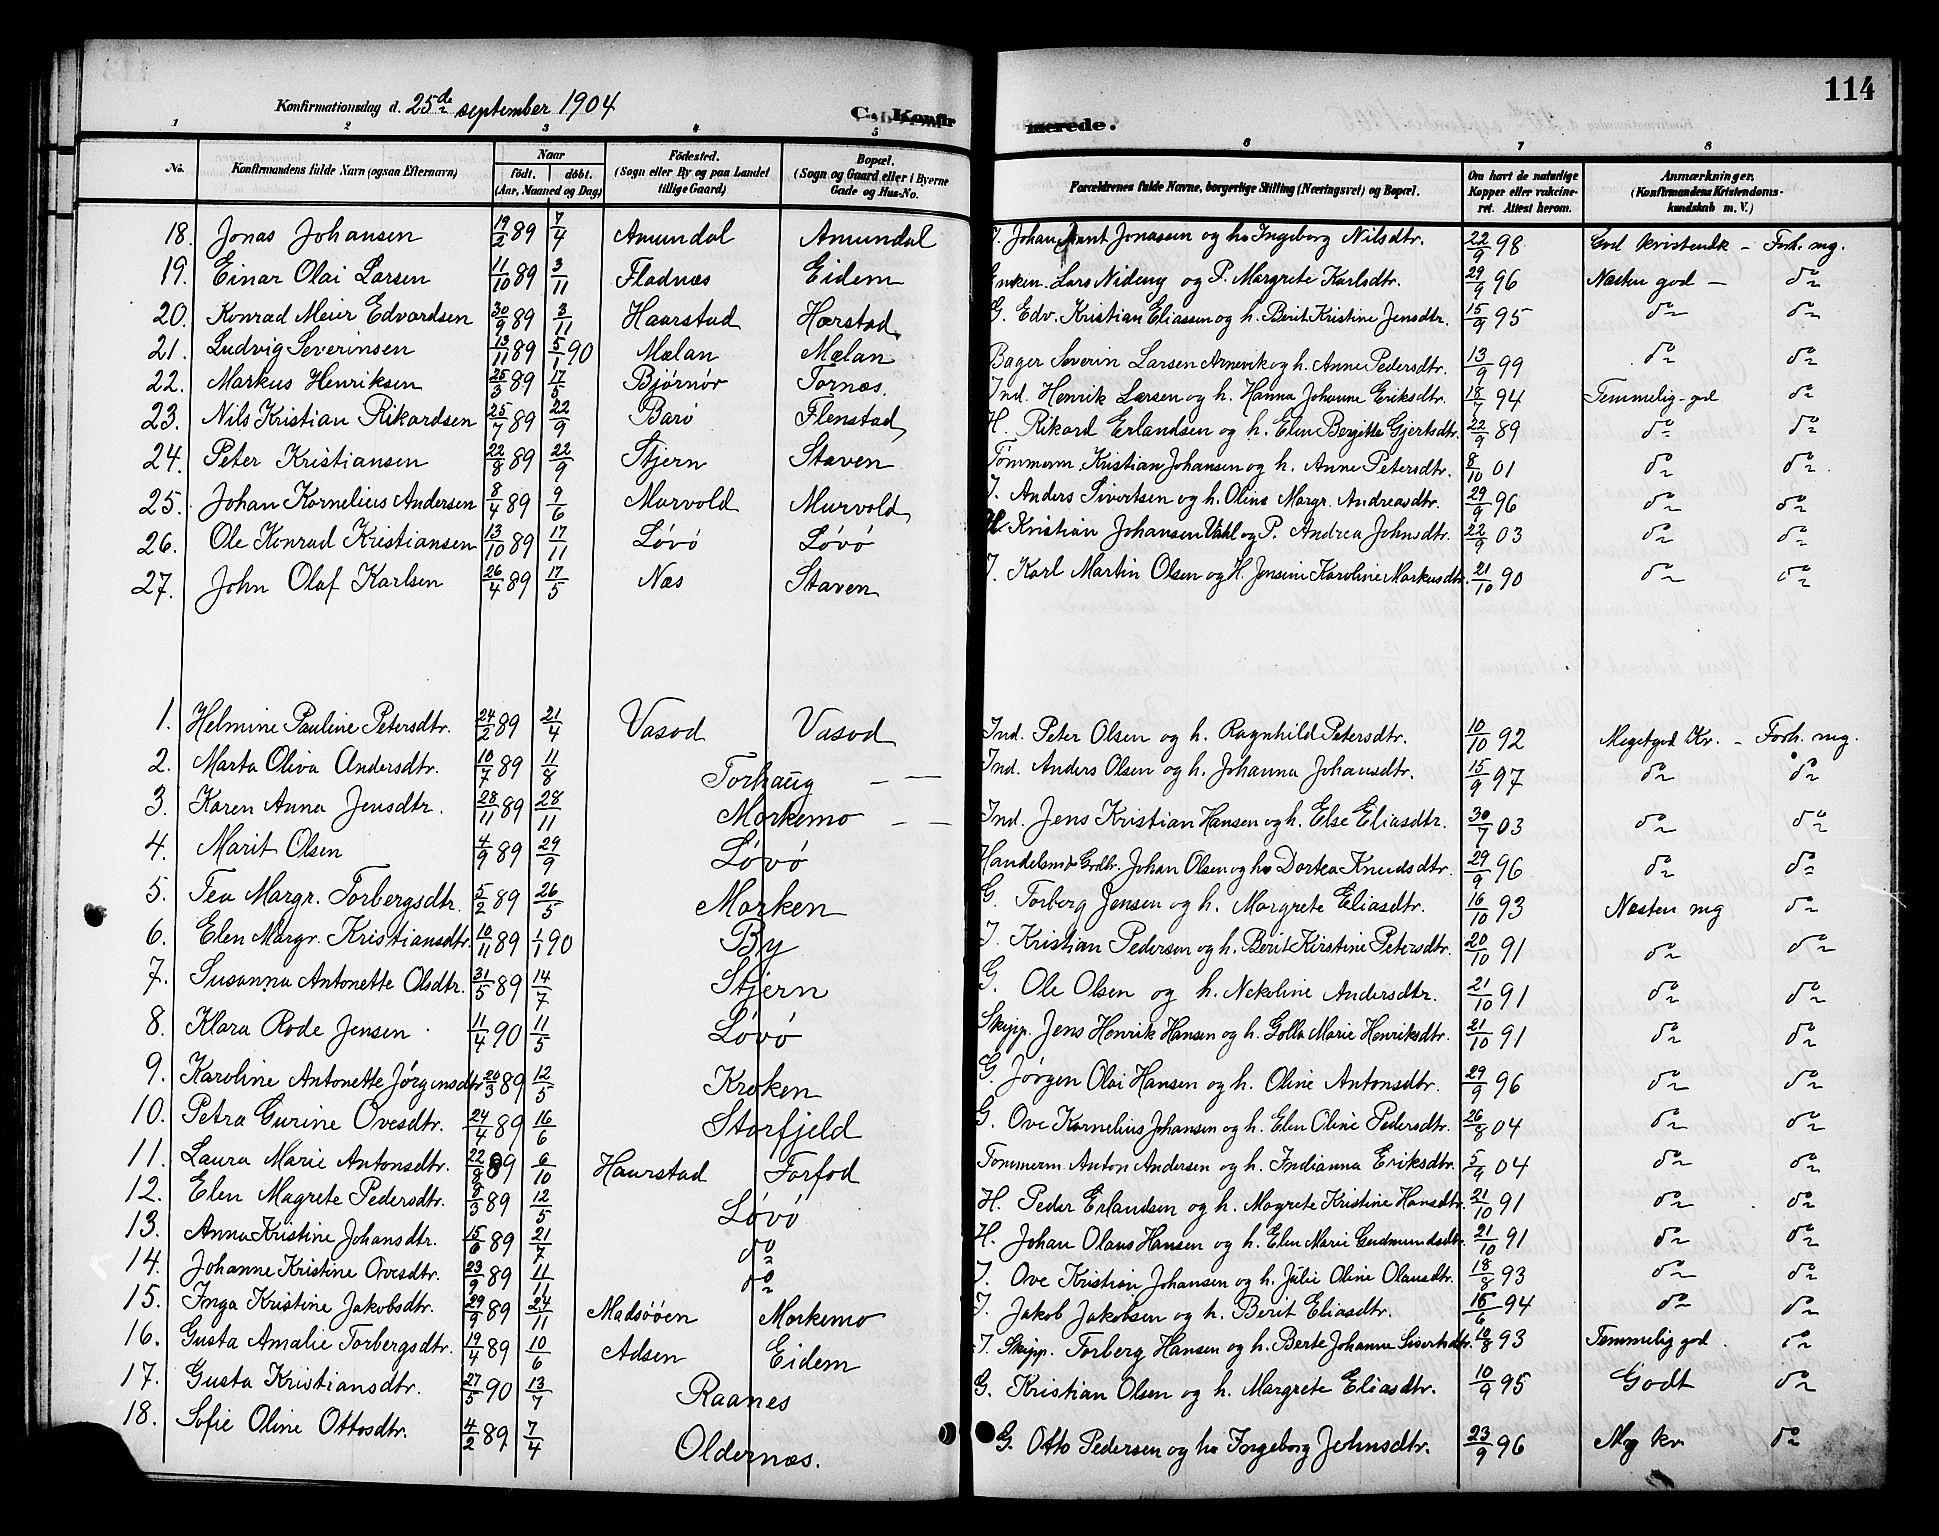 114
Konfirmationsdag d. 25de september 1904 C. Konfirmerede.
1 2 3 4 5 6 7 8
No. | Konfirmandens fulde Navn (ogsaa Efternavn) | Naar født. døbt. (Aar, Maaned og Dag) | Fødested. (Sogn eller By og paa Landet tillige Gaard) | Bopæl. (Sogn og Gaard eller i Byerne Gade og Hus-No. | Forældrenes fulde Navne, borgerlige Stilling (Næringsvei) og Bopæl. | Om havt de naturlige Kopper eller vaccineret. Attest herom. | Anmærkninger. (Konfirmandens Kristendomskundskab m. V.)
18. Jonas Johansen 19/2 89 7/4 Amundal Amundal I. Johan Arnt Jonassen og ho Ingeborg Nilsdtr. 22/9 98 God kristendk – Forh. mg.
19. Einar Olai Larsen 11/10 89 3/11 Fladnæs Eidem Enkem. Lars Nideng og P. Margrete Karlsdtr. 29/9 96 Næsten god – do
20. Konrad Meier Edvardsen 30/9 89 3/11 Haarstad Harstad G. Edv. Kristian Eliassen og h. Berit Kristine Jensdtr. 15/9 95 do do
21. Ludvig Severinsen 13/11 89 5/1 90 Mælan Mælan Bager Severin Larsen Arnevik og h. Anne Pedersdtr. 13/9 99 do do
22. Markus Henriksen 25/3 89 17/5 Bjørnør Tornæs. Ind. Henrik Larsen og h. Hanna Johanne Eriksdtr. 18/7 94 Temmelig god do
23. Nils Kristian Rikardsen 25/7 89 22/9 Barø Flenstad H. Rikard Erlandsen og h. Elen Bergitte Gjertsdtr. 22/9 89 do do
24. Peter Kristiansen 22/8 89 22/9 Stjern Staven Tømmerm. Kristian Johansen og h. Anne Petersdtr. 8/10 01 do do
25. Johan Kornelius Andersen 8/4 89 9/6 Murvold Murvold I. Anders Sivertsen og h. Oline Margr. Andreasdtr. 29/9 96 do do
26. Ole Konrad Kristiansen 13/10 89 17/11 Løvø Løvø H. Kristian Johansen Vahl og P. Andrea Johnsdtr. 22/9 03 do do
27. John Olaf Karlsen 26/4 89 17/5 Næs Staven I. Karl Martin Olsen og H. Jensine Karoline Markusdtr. 21/10 90 do do
1. Helmine Pauline Petersdtr. 24/2 89 21/4 Vasod Vasod Ind. Peter Olsen og h. Ragnhild Petersdtr. 10/10 92 Megetgod Kr. – Forh. mg.
2. Marta Oliva Andersdtr. 10/7 89 11/8 Torhaug – – Ind. Anders Olsen og h. Johanna Johansdtr. 15/9 97 do do
3. Karen Anna Jensdtr. 28/11 89 28/11 Morkemo – – Ind. Jens Kristian Hansen og h. Else Eliasdtr. 30/7 03 do do
4. Marit Olsen 4/9 89 29/9 Løvø Handelsm. Grdbr. Johan Olsen og ho Dortea Knudsdtr. 29/9 96 do do
5. Tea Margr. Torbergsdtr. 5/2 89 26/5 Morken G. Torberg Jensen og h. Margrete Eliasdtr. 16/10 93 Næsten mg do
6. Elen Margr. Kristiansdtr. 10/11 89 1/1 90 By I. Kristian Pedersen og h. Berit Kirstine Petersdtr. 20/10 91 do do
7. Susanna Antonette Olsdtr. 31/5 89 14/7 Stjern G. Ole Olsen og h. Nekoline Andersdtr. 21/10 91 do do
8. Klara Rode Jensen 11/4 90 11/5 Løvø Skipp. Jens Henrik Hansen og h. Golla Marie Henriksdtr. 21/10 91 do do
9. Karoline Antonette Jørginsdtr 20/3 89 12/5 Kroken G. Jørgen Olai Hansen og h. Oline Antonsdtr. 29/9 96 do do
10. Petra Gurine Ovesdtr. 24/4 89 16/6 Storfjeld G. Ove Kornelius Johansen og h. Elen Oline Pedersdtr. 26/8 04 do do
11. Laura Marie Antonsdtr. 22/8 89 6/10 Haarstad Forfod Tømmerm Anton Andersen og h. Indianna Eriksdtr. 5/9 04 do do
12. Elen Magrete Pedersdtr. 8/3 89 12/5 Løvø H. Peder Erlandsen og h. Magrete Kristine Hansdtr. 21/10 91 do do
13. Anna Kristine Johansdtr. 15/6 89 21/7 do H. Johan Olaus Hansen og h. Elen Marie Gudmundsdtr. 21/10 91 do do
14. Johanne Kristine Ovesdtr. 23/9 89 11/11 do I. Ove Kristian Johansen og h. Julie Oline Olausdtr. 18/8 93 do do
15. Inga Kristine Jakobsdtr. 29/9 89 24/11 Madsøøen Morkemo I. Jakob Jakobsen og h. Berit Eliasdtr. 16/6 94 do do
16. Gusta Amalie Torbergsdtr. 19/4 89 10/6 Adsen Eidem I. Skipp. Torberg Hansen og h. Berte Johanna Sivertsdtr. 10/8 93 Temmelig god do
17. Gusta Kristiansdtr. 27/5 90 13/7 Raanes G. Kristian Olsen og h. Margrete Eliasdtr. 10/9 95 Godt do
18. Sofie Oline Ottosdtr. 4/2 89 7/4 Oldernæs. G. Otto Pedersen og ho Ingeborg Johnsdtr. 23/9 96 Mg kr do